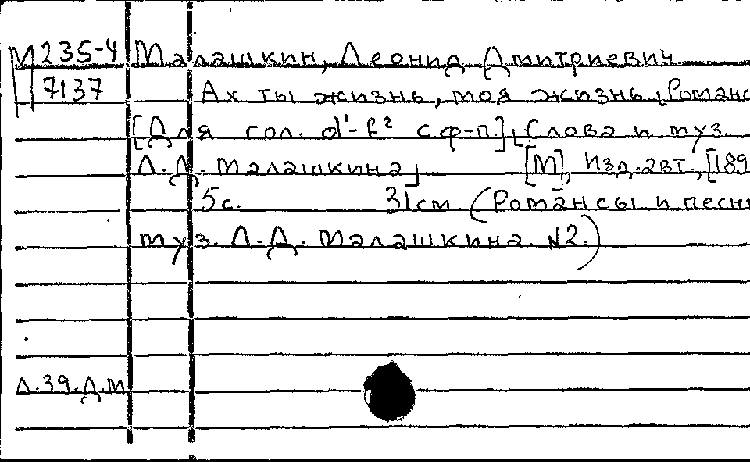 М 235-4 Малашкин, Леонид Дмитриевич
7137 Ах ты жизнь, моя жизнь. Романс
[Для гол. d¹-f² с ф-п]. Слова и муз.
Л.Д. Малашкина] [М], Изд. авт., [189
5с. 31см (Романсы и песни
муз. Л.Д. Малашкина. №2.)
Л.39.Д.М